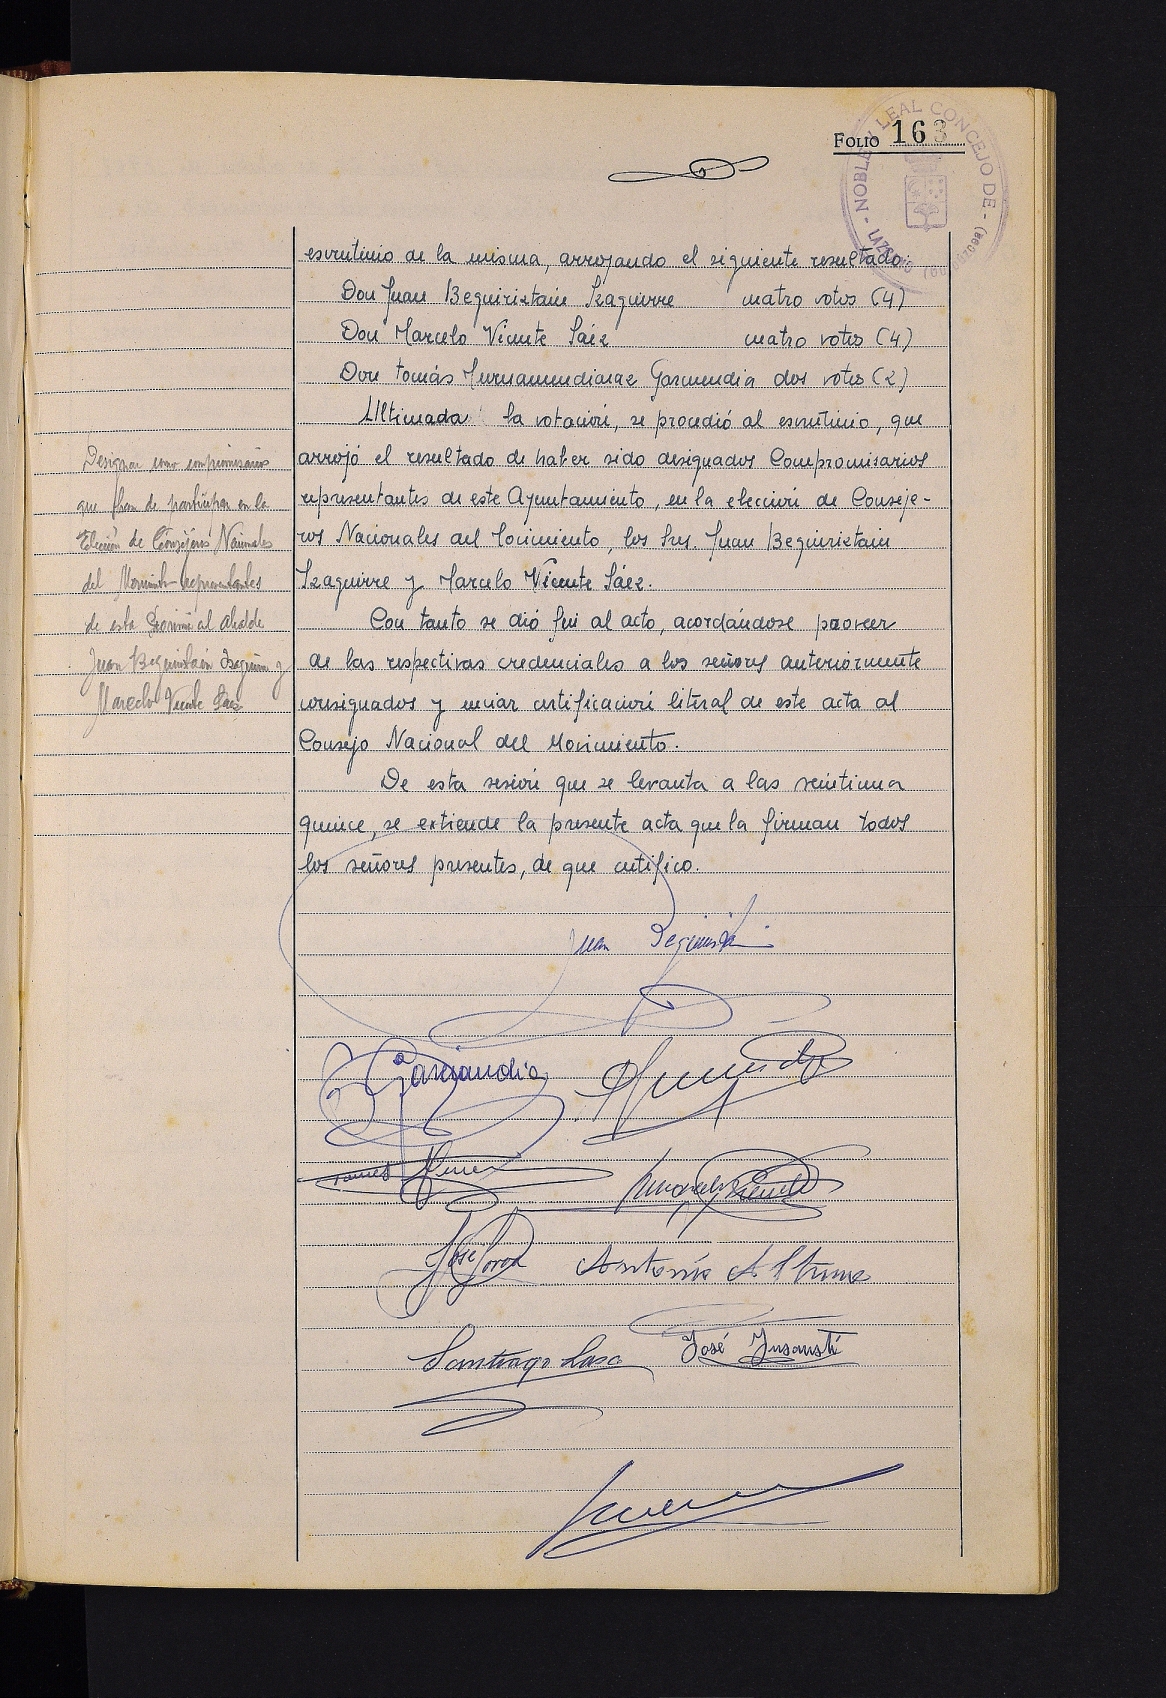 FOLIO 163
NOBLE Y LEAL CONCEJO DE - LAZCANO (Guipúzcoa) -
escrutinio de la misma, arrojando el siguiente resultado
Don Juan Beguiristain Izaguirre cuatro votos (4)
Don Marcelo Vicente Sáez cuatro votos (4)
Don Tomás Murnamendiaraz Garmendia dos votos (2)
Ultimada la votación, se procedió al escrutinio, que
arrojó el resultado de haber sido designados Compromisarios
representantes de este Ayuntamiento, en la elección de Conseje-
ros Nacionales del Movimiento, los Srs. Juan Beguiristain
Izaguirre y Marcelo Vicente Sáez.
Con tanto se dió fin al acto, acordándose proveer
de las respectivas credenciales a los señores anteriormente
consignados y enviar certificación literal de este acta al
Consejo Nacional del Movimiento.
De esta sesión que se levanta a las veintiuna
quince, se extiende la presente acta que la firman todos
los señores presentes, de que certifico.
Designar como compromisarios
que han de participar en la
Elección de Consejeros Nacionales
del Movimiento representantes
de esta Provincia al Alcalde
Juan Beguiristain Izaguirre y
Marcelo Vicente Sáez
Juan Beguiristain
Garciandia
Tomás
José
Antonio Altuna
Santiago Lasa
José Insausti